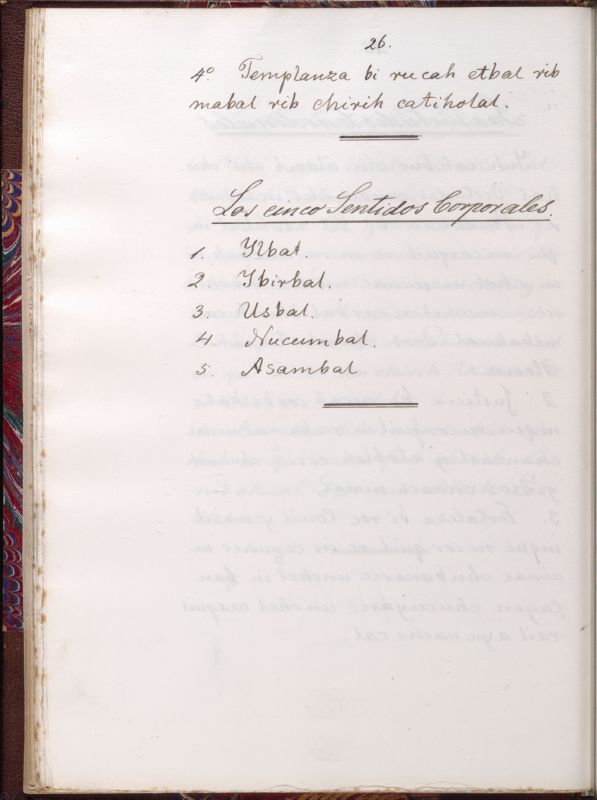 26.
4º Templanza bi rucah etbal rib
mabal rib chirih catiholal.
Los cinco Sentidos Corporales.
1. Ylbal.
2 Ybirbal.
3. Usbal.
4. Nucumbal.
5. Asambal